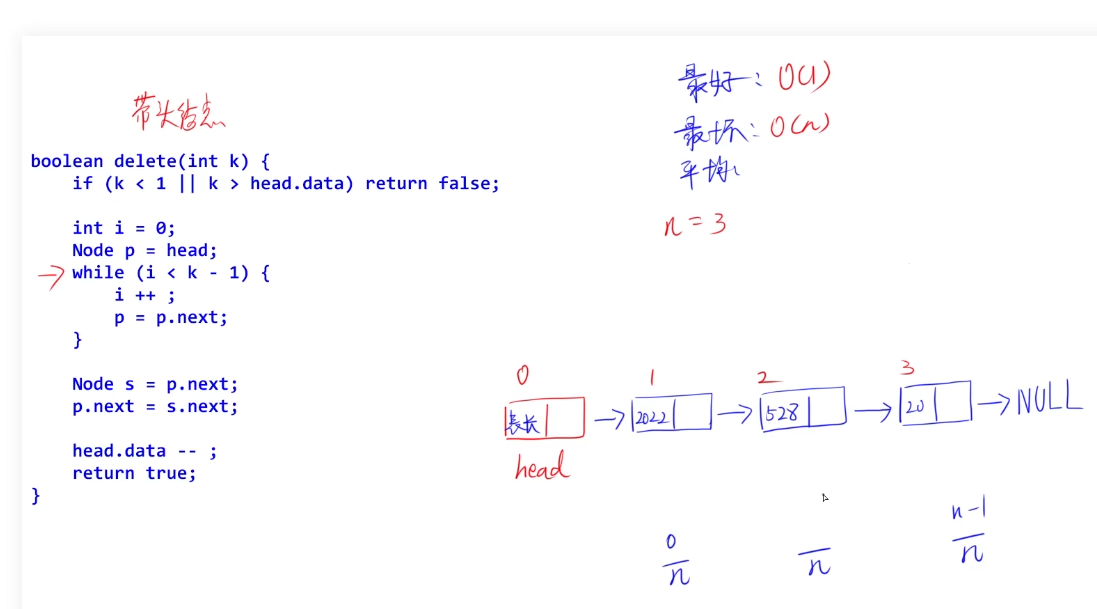 带头结点
boolean delete(int k) {
if (k < 1 || k > head.data) return false;
int i = 0;
Node p = head;
while (i < k - 1) {
i ++ ;
p = p.next;
}
Node s = p.next;
p.next = s.next;
head.data -- ;
return true;
}
最好: O(1)
最坏: O(n)
平均:
n = 3
0 1 2 3
表长 → 2022 → 528 → 20 → NULL
head
0 n-1
n n n